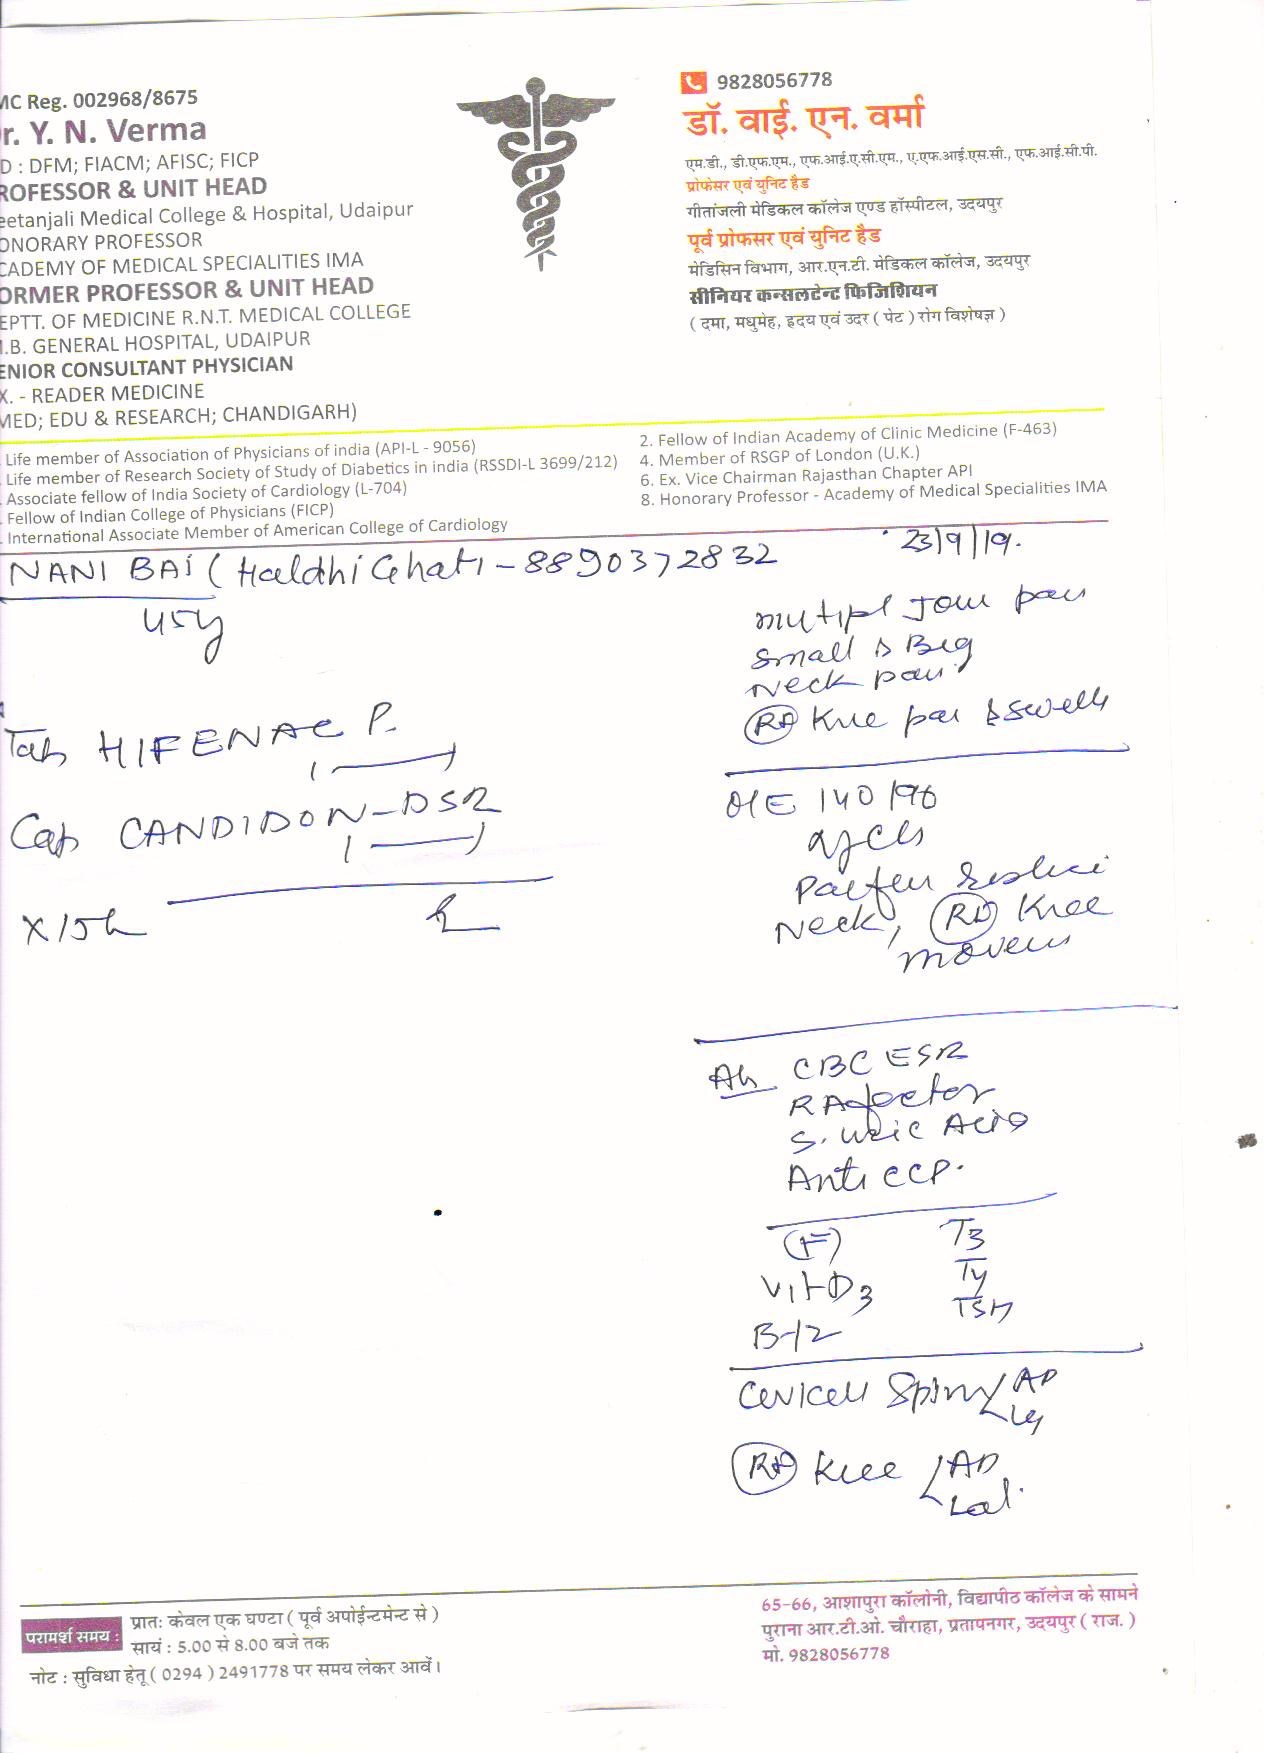 MC Reg. 002968/8675
r. Y. N. Verma
D : DFM; FIACM; AFISC; FICP
ROFESSOR & UNIT HEAD
eetanjali Medical College & Hospital, Udaipur
ONORARY PROFESSOR
CADEMY OF MEDICAL SPECIALITIES IMA
ORMER PROFESSOR & UNIT HEAD
EPTT. OF MEDICINE R.N.T. MEDICAL COLLEGE
.B. GENERAL HOSPITAL, UDAIPUR
ENIOR CONSULTANT PHYSICIAN
X. - READER MEDICINE
MED; EDU & RESEARCH; CHANDIGARH)
9828056778
डॉ. वाई. एन. वर्मा
एम.डी., डी.एफ.एम., एफ.आई.ए.सी.एम., ए.एफ.आई.एस.सी., एफ.आई.सी.पी.
प्रोफेसर एवं युनिट हैड
गीतांजली मेडिकल कॉलेज एण्ड हॉस्पीटल, उदयपुर
पूर्व प्रोफसर एवं युनिट हैड
मेडिसिन विभाग, आर.एन.टी. मेडिकल कॉलेज, उदयपुर
सीनियर कन्सलटेन्ट फिजिशियन
( दमा, मधुमेह, हृदय एवं उदर ( पेट ) रोग विशेषज्ञ )
Life member of Association of Physicians of india (API-L - 9056)
Life member of Research Society of Study of Diabetics in india (RSSDI-L 3699/212)
Associate fellow of India Society of Cardiology (L-704)
Fellow of Indian College of Physicians (FICP)
International Associate Member of American College of Cardiology
2. Fellow of Indian Academy of Clinic Medicine (F-463)
4. Member of RSGP of London (U.K.)
6. Ex. Vice Chairman Rajasthan Chapter API
8. Honorary Professor - Academy of Medical Specialities IMA
23/9/19.
NANI BAI ( Haldhi Ghati - 8890372832
45y
Tab HIFENAC P.
Cap CANDIDON-DSR
Small & Big
Neck pain
Knee
O/E 140/90
Neck, Knee
CBC ESR
RA factor
S. Uric Acid
Anti CCP.
(F) T3
Vit D3 T4
B-12 TSH
Spine AP
Knee AP
Lat.
परामर्श समय :
प्रातः केवल एक घण्टा ( पूर्व अपोईन्टमेन्ट से )
सायं : 5.00 से 8.00 बजे तक
नोट : सुविधा हेतू ( 0294 ) 2491778 पर समय लेकर आवें।
65-66, आशापुरा कॉलोनी, विद्यापीठ कॉलेज के सामने
पुराना आर.टी.ओ. चौराहा, प्रतापनगर, उदयपुर ( राज. )
मो. 9828056778